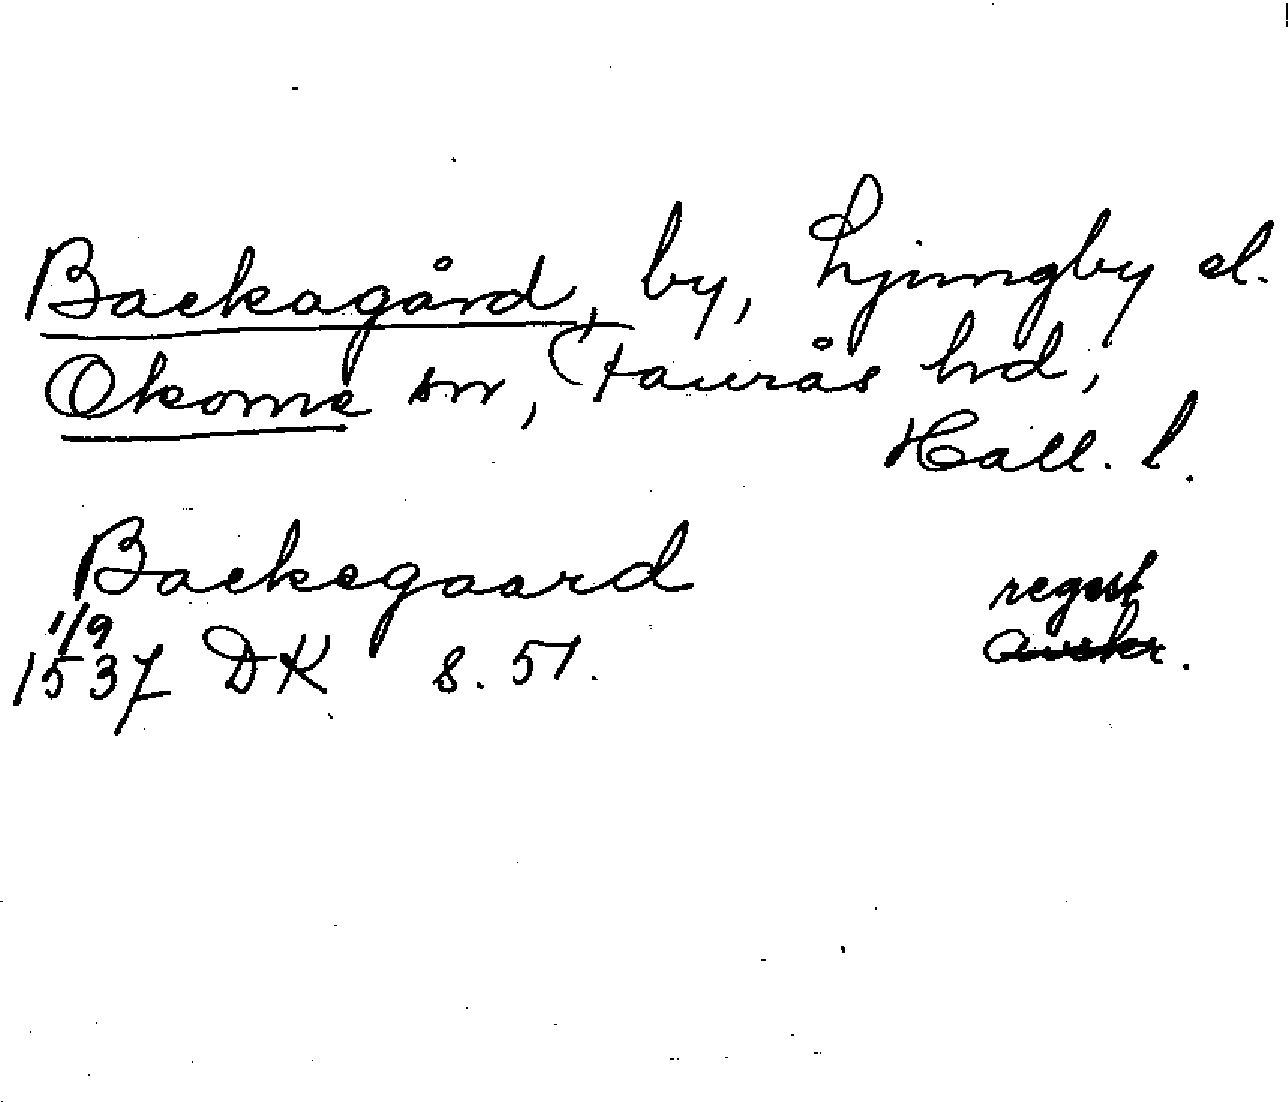 Backagård, by, Ljungby el.
Okome sn, Faurås hd,
Hall. l.
Backegaard
regest
avskr.
1/9
1537 DK s. 51.